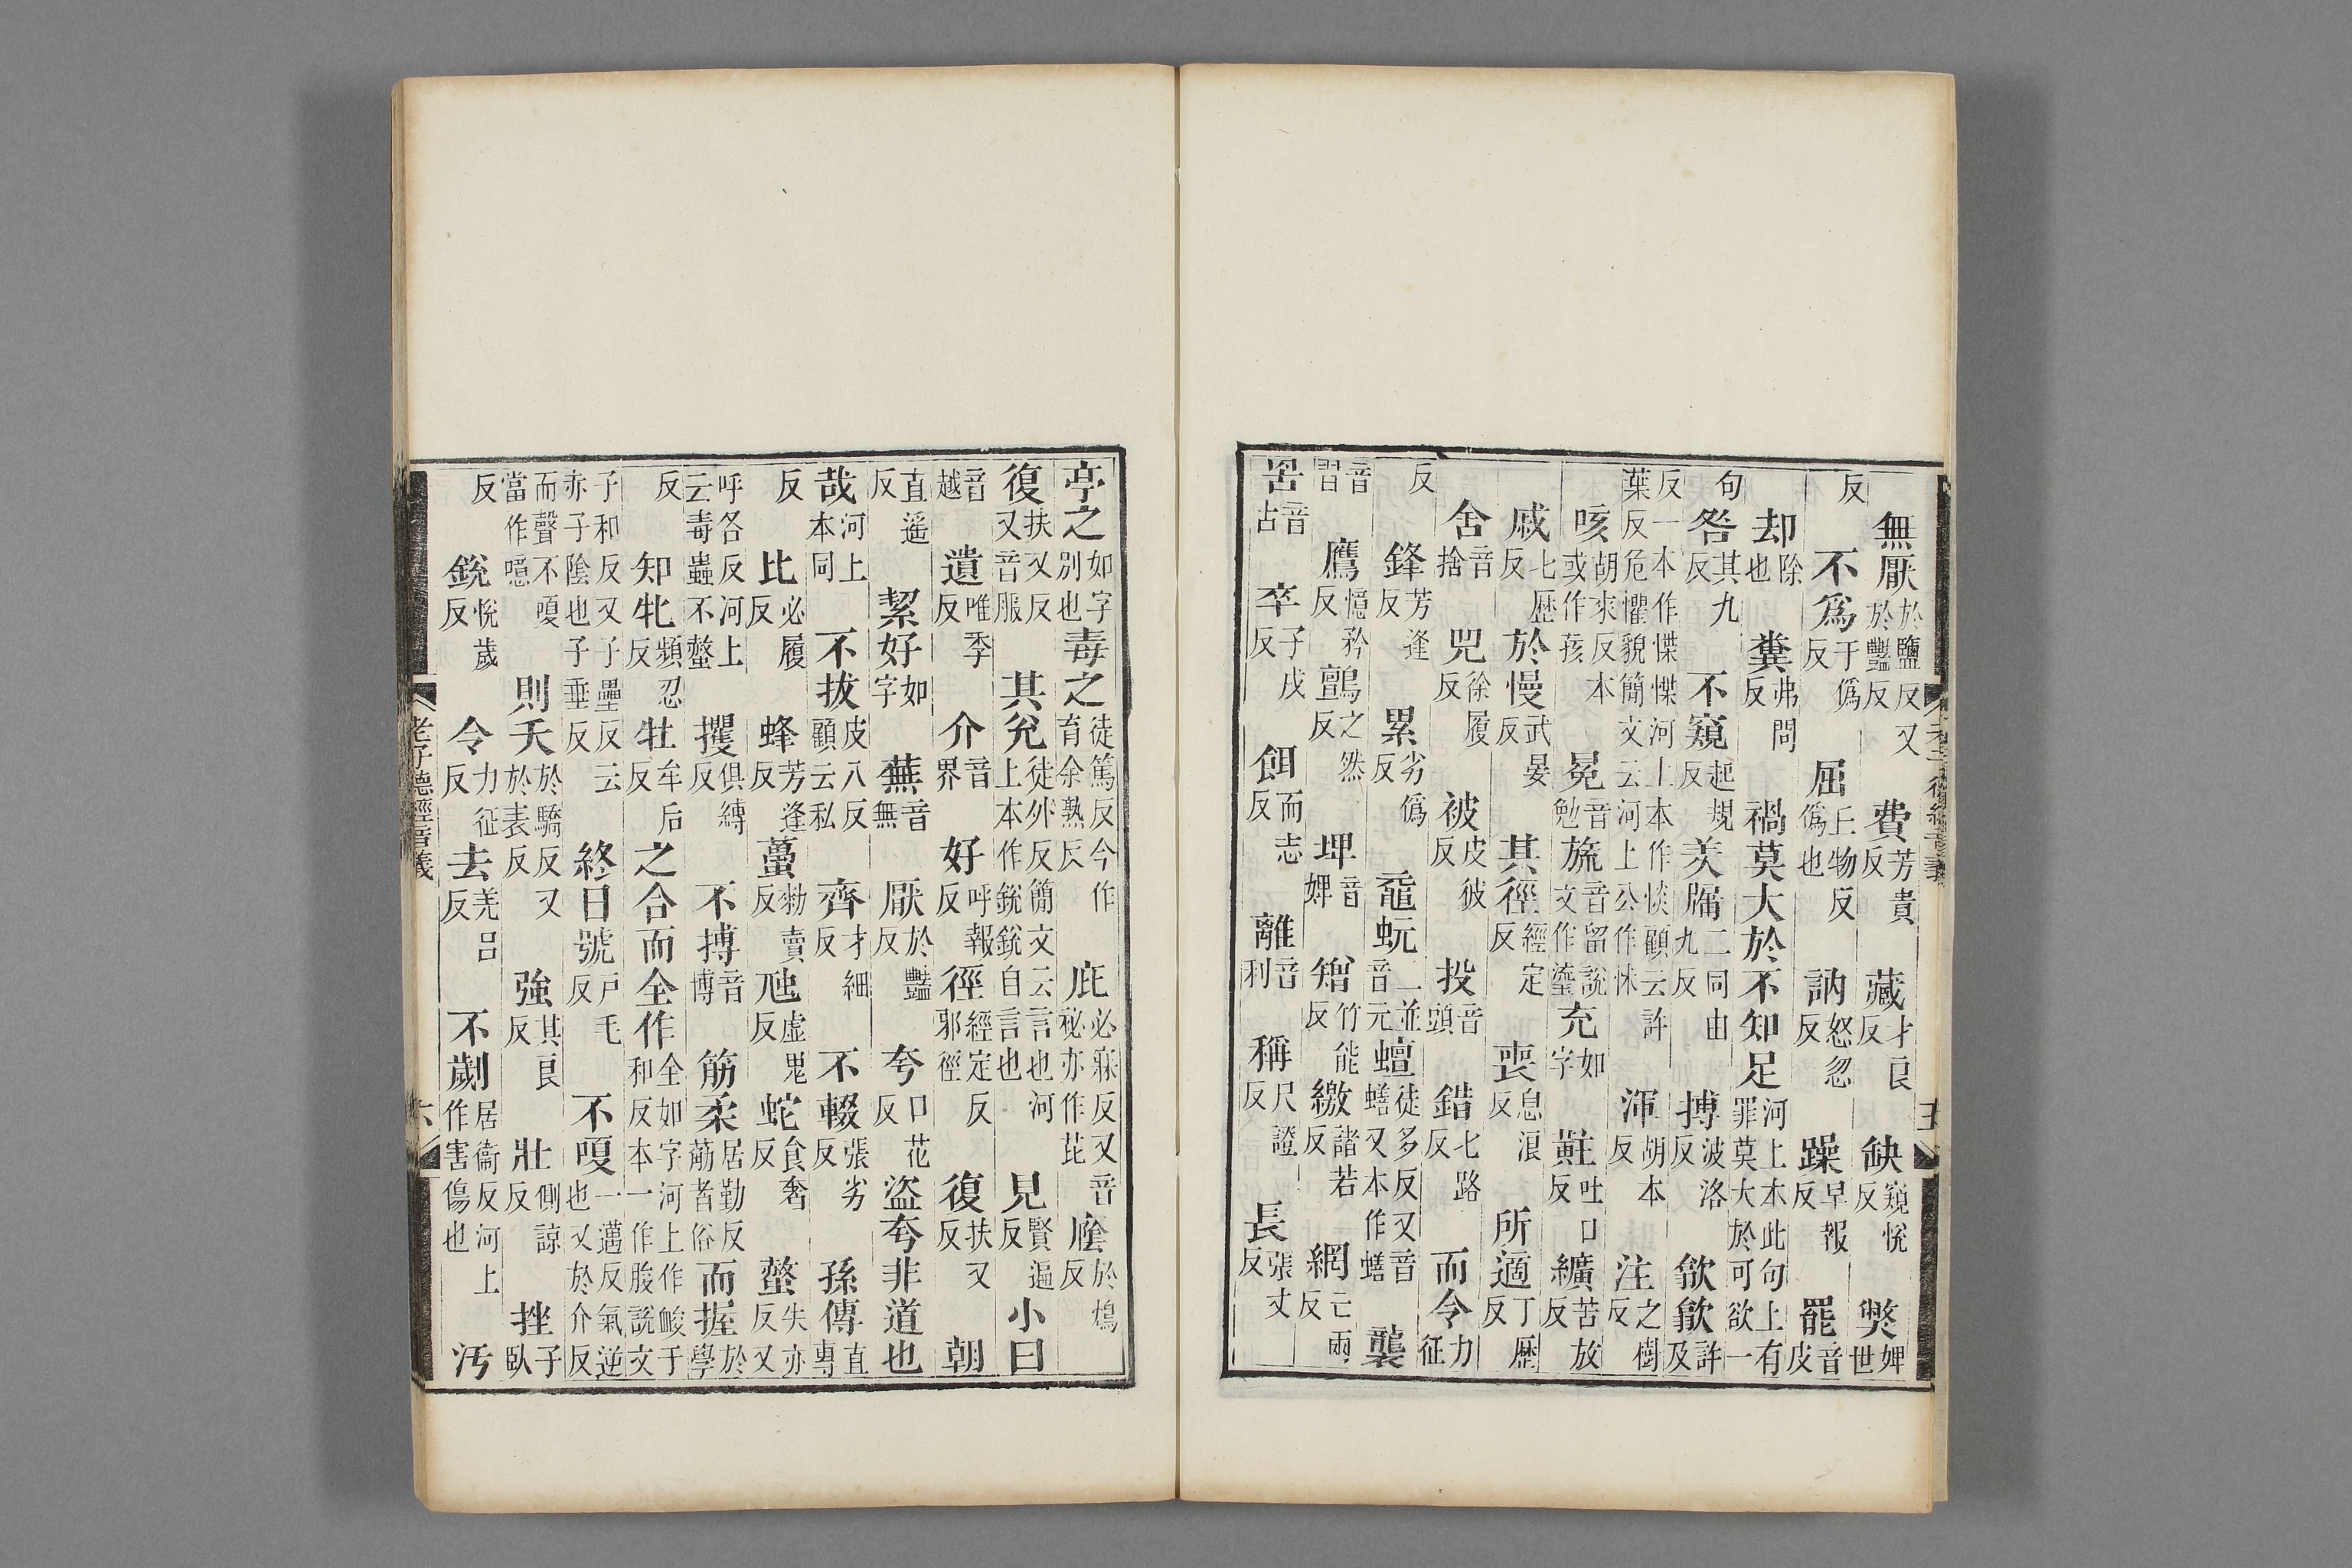 無厭於鹽反又於豔反費芳貴反藏才良反缺窺悅反獘婢世
反不爲于僞反屈丘物反僞也訥怒忽反躁早報反罷音皮
却除也糞弗問反禍莫大於不知足河上本此句上有罪莫大於可欲一
句咎其九反不窺起規反羑牖二同由九反搏波洛反歙歙許及
反一本作惵惵河上本作惔顧云許葉反危懼貌簡文云河上公作怵渾胡本反注之樹反
咳胡來反本或作孩冕音勉旒音留說文作瑬充如字黈吐口反纊苦放反
戚七歷反於慢武晏反其徑經定反喪息浪反所適丁歷反
舍音捨兕徐履反被皮彼反投音頭錯七路反而令力征
反鋒芳逢反累劣僞反黿蚖二並音元蟺徒多反又音蟮又本作蟮襲
音習鷹憶矜反鸇之然反埤音婢矰竹能反繳諸若反網亡兩反
罟音古卒子戌反餌而志反離音利稱尺證反長張丈反
五
亭之如字別也毒之徒篤反今作育余熟反庇必寐反又音祕亦作芘廕於鴆反
復扶又反又音服其兊徒外反簡文云言也河上本作銳銳自言也見賢遍反小曰
音越遺唯季反介音界好呼報反徑經定反邪徑復扶又反朝
直遥反絜好如字蕪音無厭於豔反夸口花反盜夸非道也
哉河上本同不拔皮八反顧云私齊才細反不輟張劣反孫傳直專
反比必履反蜂芳逢反蠆勑賣反虺虛鬼反蛇食奢反螫失亦反又
呼各反河上云毒蟲不螫攫俱縛反不搏音博筋柔居勤反䈥者俗而握於學
反知牝頻忍反牡牟后反之合而全作全如字河上作峻于和反本一作朘說文
子和反又子壘反云亦子陰也子垂反終日號戶毛反不嗄一邁反氣逆也又於介反
而聲不嗄當作噫則夭於驕反又於表反強其良反壯側諒反挫子臥
反銳悅歲反令力征反去羌呂反不劌居衞反河上作害傷也汚
老子德經音義 六